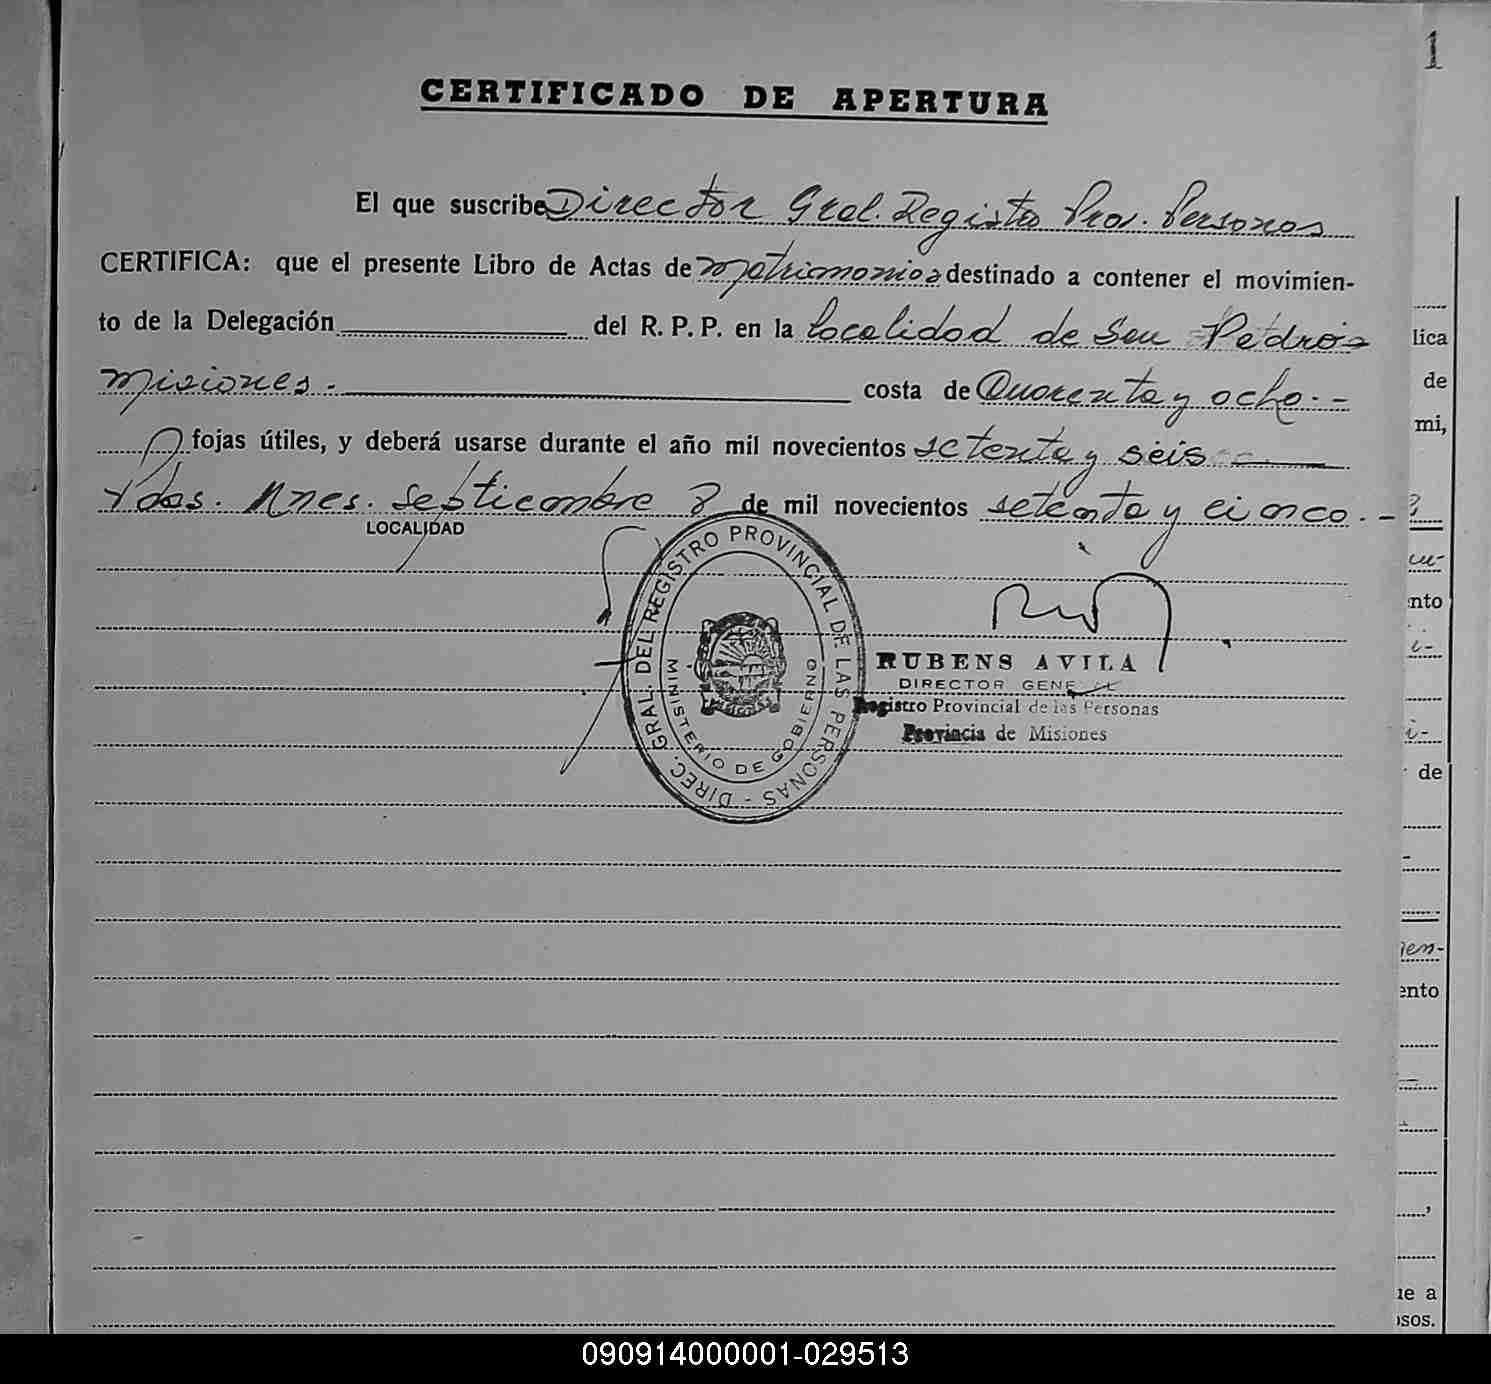 1
CERTIFICADO DE APERTURA
El que suscribe Director Gral. Registro Prov. Personas
CERTIFICA: que el presente Libro de Actas de Matrimonios destinado a contener el movimien-
to de la Delegación del R. P. P. en la localidad de San Pedro
Misiones. - costa de Quarenta y ocho. -
fojas útiles, y deberá usarse durante el año mil novecientos setenta y seis
Pdas. Mnes. Septiembre 8 de mil novecientos setenta y cinco. -
LOCALIDAD
DIREC. GRAL. DEL REGISTRO PROVINCIAL DE LAS PERSONAS -
MINISTERIO DE GOBIERNO
RUBENS AVILA
DIRECTOR GENERAL
Registro Provincial de las Personas
Provincia de Misiones
lica
de
mi,
nto
de
ento
ue a
osos.
090914000001-029513